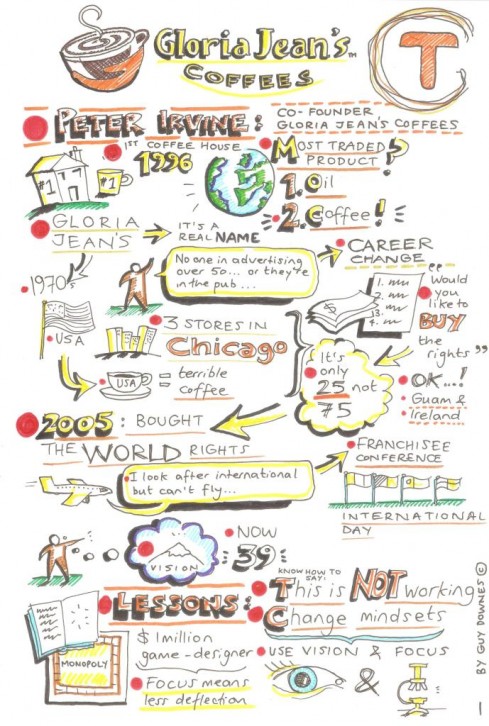 Gloria Jean's TM
COFFEES
T
PETER IRVINE:
CO-FOUNDER
GLORIA JEAN'S COFFEES
1ST COFFEE HOUSE
1996
#1
#1
MOST TRADED
PRODUCT?
1. Oil
2. Coffee!
GLORIA
JEAN'S
IT'S A
REAL NAME
CAREER
CHANGE
1970's
USA
No one in advertising
over 50... or they're
in the pub...
1.
2.
3.
4.
$
"Would
you
like to
BUY
the
rights"
3 STORES IN
Chicago
USA
= terrible
coffee
It's
only
25 not
75
OK...!
Guam &
Ireland
2005: BOUGHT
THE WORLD RIGHTS
FRANCHISEE
CONFERENCE
I look after international
but can't fly...
INTERNATIONAL
DAY
VISION
NOW
39
LESSONS:
KNOW HOW TO
SAY:
This is NOT working
Change mindsets
MONOPOLY
$ 1million
game-designer
FOCUS means
less deflection
USE VISION & FOCUS
&
BY GUY DOWNES ©
1